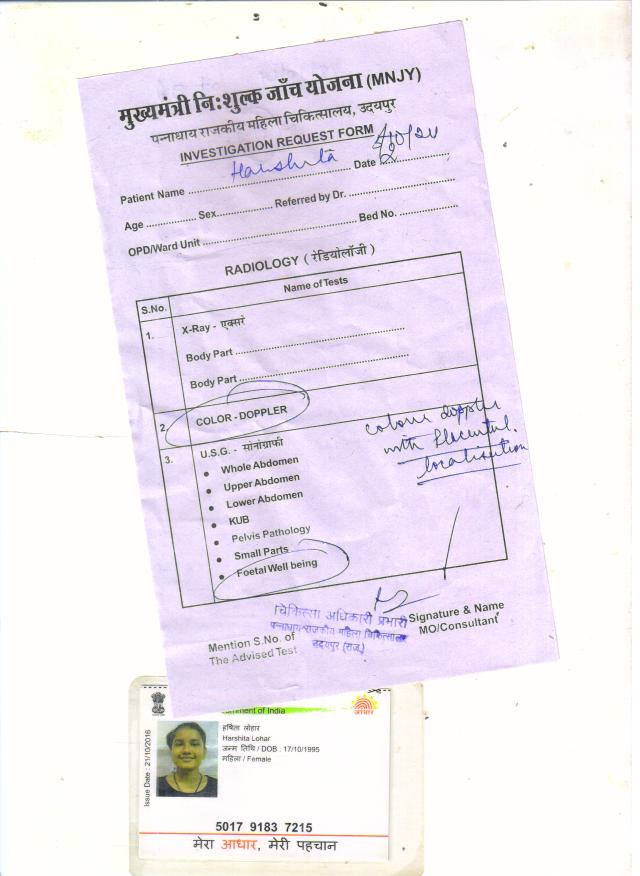 मुख्यमंत्री निःशुल्क जाँच योजना (MNJY)
पन्नाधाय राजकीय महिला चिकित्सालय, उदयपुर
INVESTIGATION REQUEST FORM
Patient Name ........ Harshita ........ Date ........
Age ............... Sex ............... Referred by Dr. ...............
OPD/Ward Unit ............... Bed No. ...............
RADIOLOGY ( रेडियोलॉजी )
S.No. Name of Tests
1. X-Ray - एक्सरे
Body Part ...............
Body Part ...............
2. COLOR - DOPPLER
3. U.S.G. - सोनोग्राफी
• Whole Abdomen
• Upper Abdomen
• Lower Abdomen
• KUB
• Pelvis Pathology
• Small Parts
• Foetal Well being
colour doppler
with Placental
localisation
चिकित्सा अधिकारी प्रभारी
पन्नाधाय राजकीय महिला चिकित्सालय
उदयपुर (राज.)
Signature & Name
MO/Consultant
Mention S.No. of
The Advised Test
of India
आधार
Issue Date : 21/10/2016
हर्षिता लोहार
Harshita Lohar
जन्म तिथि / DOB : 17/10/1995
महिला / Female
5017 9183 7215
मेरा आधार, मेरी पहचान